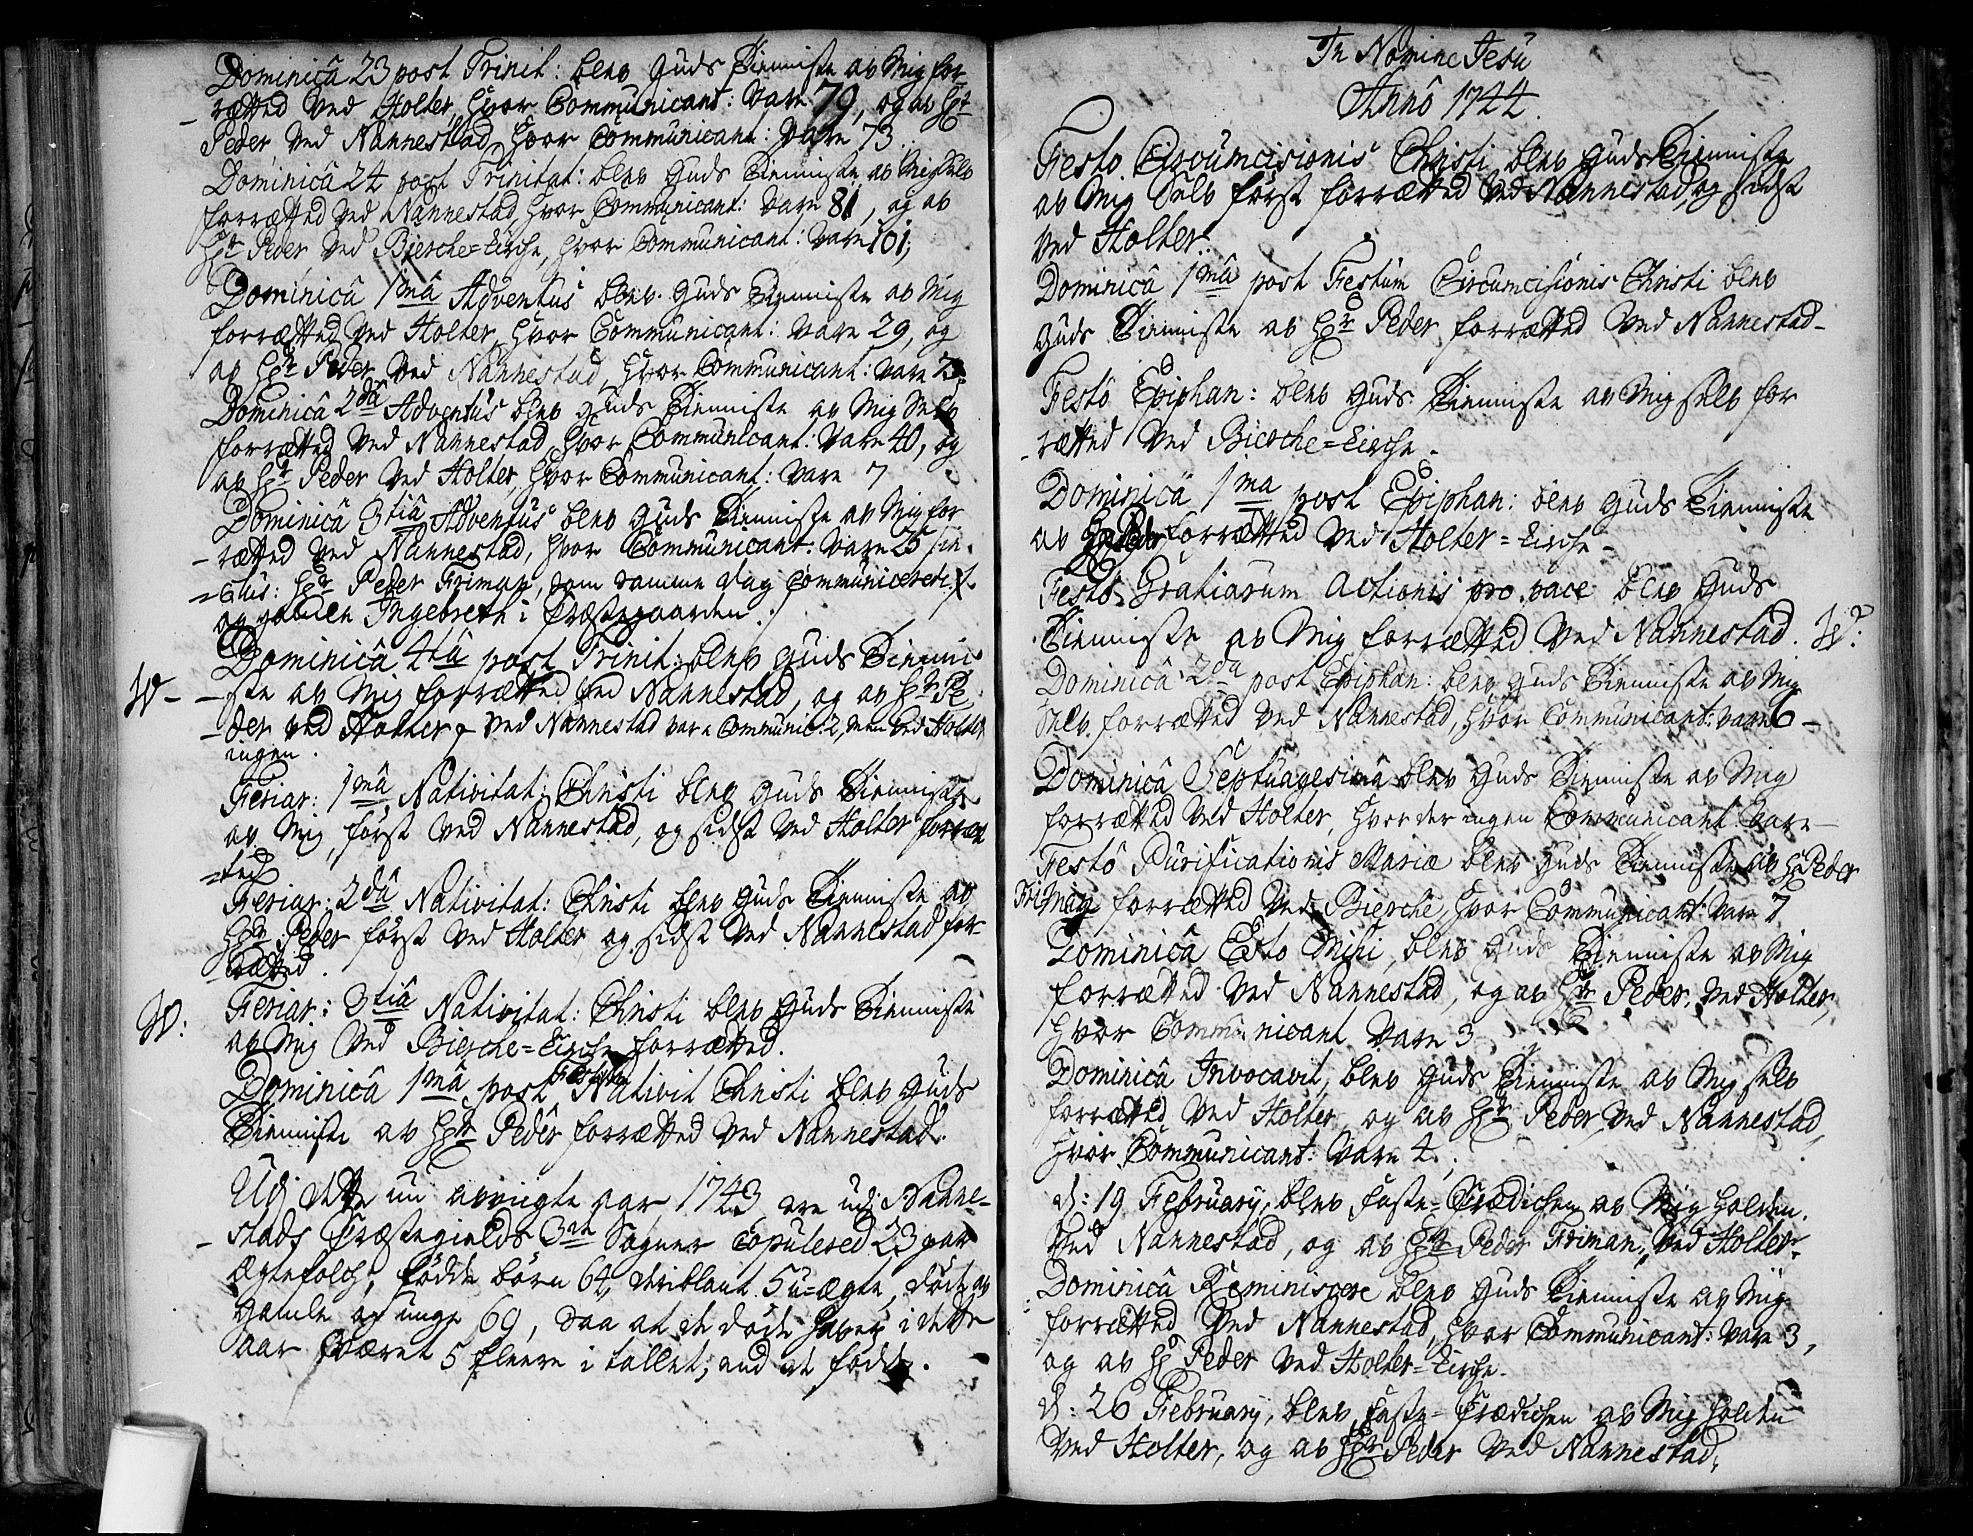 Dominicâ 23 post Trinit: blev Guds Tienniste av Mig for-
-rætted ved Holter, hvor Communicant: vare 79, og av Hr
Peder ved Nannestad, hvor Communicant: vare 73.
Dominicâ 24 post Trinitat: blev Guds Tienniste av Mig Selv
forrætted ved Nannestad, hvor Communicant: vare 81, og av
Hr Peder ved Bierche=Kirche, hvor Communicant: vare 101;
Dominicâ 1mâ Adventus blev Guds Tienniste av Mig
forrætted ved Holter, hvor Communicant: vare 29, og
av Hr Peder ved Nannestad, hvor Communicant: vare
Dominicâ 2dâ Adventus blev Guds Tienniste av Mig Selv
forrætted ved Nannestad, hvor Communicant: vare 40, og
av Hr Peder ved Holter, hvor Communicant: vare 7
Dominicâ 3tiâ Adventus blev Guds Tienniste av Mig for
-rætted ved Nannestad, hvor Communicant: vare 25
Hr Peder Friman, som samme dag Communicerede
og gamle Ingebreth i Præstegaarden.
Dominicâ 4tâ post Trinit: blev Guds Tienni
W - -ste av Mig forrætted ved Nannestad, og av Hr Pe
-der ved Holter, ved Nannestad vare Communic: 2, men ved Holter
ingen.
Feriar: 1mâ Nativitat: Christi blev Guds Tienniste
av Mig, først ved Nannestad, og sidst ved Holter forræt
=ted
Feriar: 2dâ Nativitat: Christi blev Guds Tienniste av
Hr Peder først ved Holter, og sidst ved Nannestad for-
rætted.
W: Feriar: 3tiâ Nativitat: Christi blev Guds Tienniste
av Mig ved Bierche=Kirche forrætted.
Dominicâ 1mâ post Festum Nativit Christi blev Guds
Tienniste av Hr Peder forrætted ved Nannestad.
Udi dette nu avvigte aar 1743 ere udi Nanne-
-stads Præstegields 3de Sogner Copulered 23 par
Ægtefolch, fødde børn 64, deriblant 5 u=ægte, døde av
gamle og unge 69, saa at de døde haver i dette
aar været 5 fleere i tallet, end de fødde.
In Nomine Jesu
Annô 1744.
Festo Circumcisionis Christi blev Guds Tienniste
av Mig Selv først forrætted ved Nannestad, og sidst
ved Holter.
Dominicâ 1mâ post Festum Circumcisionis Christi blev
Guds Tienniste av Hr Peder forrætted ved Nannestad-
Festô Epiphan: blev Guds Tienniste av Mig selv for
-rætted ved Bierche=Kirche.
Dominicâ 1ma post Epiphan: blev Guds Tienniste
av Hr Peder forrætted ved Holter=Kirche-
Festô Gratiarum Actionis pro pace blev Guds
Tienniste av Mig forrætted ved Nannestad. W:
Dominicâ 2da post Epiphan: blev Guds Tienniste av Mig
Selv forrætted ved Nannestad, hvor Communicant: vare 6-
Dominicâ Septuagesimâ blev Guds Tienniste av Mig
forrætted ved Holter, hvor der ingen Communicant vare-
Festô Purificationis Mariæ blev Guds Tienniste av Hr Peder
Friman forrætted ved Bierche, hvor Communicant: vare 7
Dominicâ Esto Mihi, blev Guds Tienniste av Mig
forrætted ved Nannestad, og av Hr Peder ved Holter,
hvor Communicant vare 3
Dominicâ Invocavit, blev Guds Tienniste av Mig selv
forrætted ved Holter, og av Hr Peder ved Nannestad,
hvor Communicant: vare 4.
d: 19 February, blev Faste=Prædichen av Mig holden
ved Nannestad, og av Hr Peder Friman, ved Holter.
Dominicâ Reminiscere blev Guds Tienniste av Mig
forrætted ved Nannestad, hvor Communicant: vare 3,
og av Hr Peder ved Holter=Kirche.
d: 26 February, blev Faste-Prædichen av Mig holden
ved Holter, og av Hr Peder ved Nannestad.